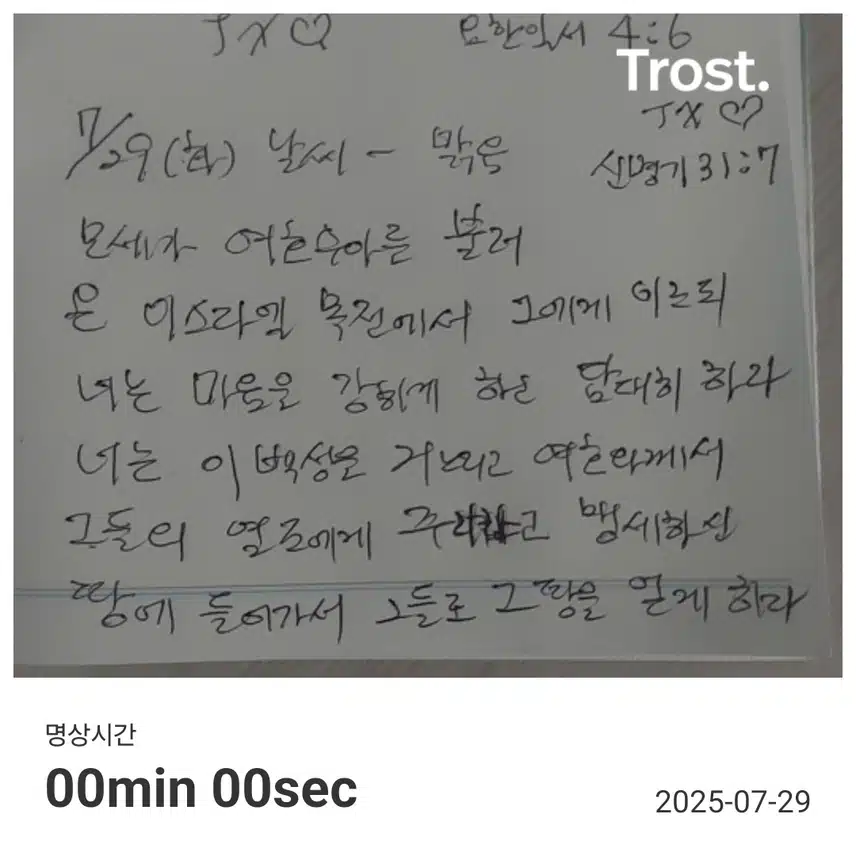 JX♡ 요한일서 4:6
Trost.
JX♡
7/29 (화) 날씨 - 맑음 신명기 31:7
모세가 여호수아를 불러
온 이스라엘 목전에서 그에게 이르되
너는 마음을 강하게 하고 담대히 하라
너는 이 백성을 거느리고 여호와께서
그들의 열조에게 주리라고 맹세하신
땅에 들어가서 그들로 그 땅을 얻게 하라
명상시간
00min 00sec
2025-07-29